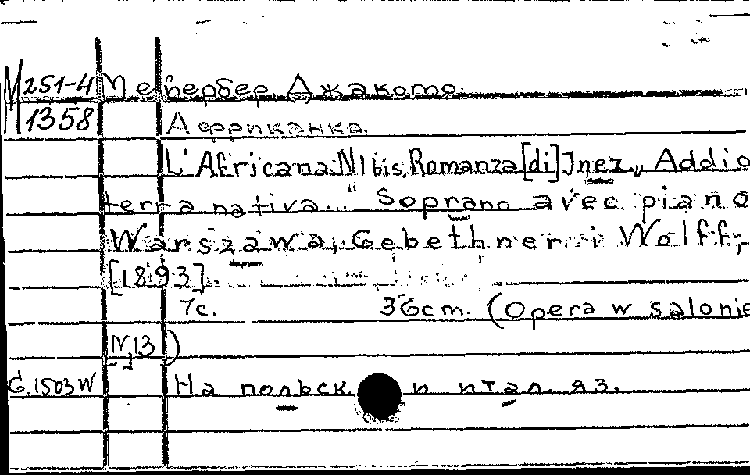 М251-4 Мейербер Джакомо.
1358 Африканка.
L'Africana. N1bis. Romanza [di] Inez „Addio
terra nativa..." Soprano avec piano
Warszawa, Gebethner i Wolff,
[1893].
7с. 36cm. (Opera w salonie
N13)
G.1503W На польск. и итал. яз.